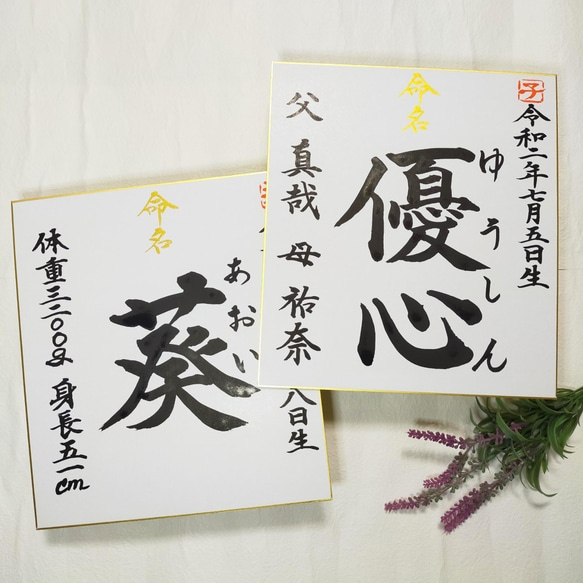 子
令和二年七月五日生
命名
優心
ゆうしん
父 真哉 母 祐奈
八日生
命名
葵
あおい
体重三二〇〇g 身長五一cm